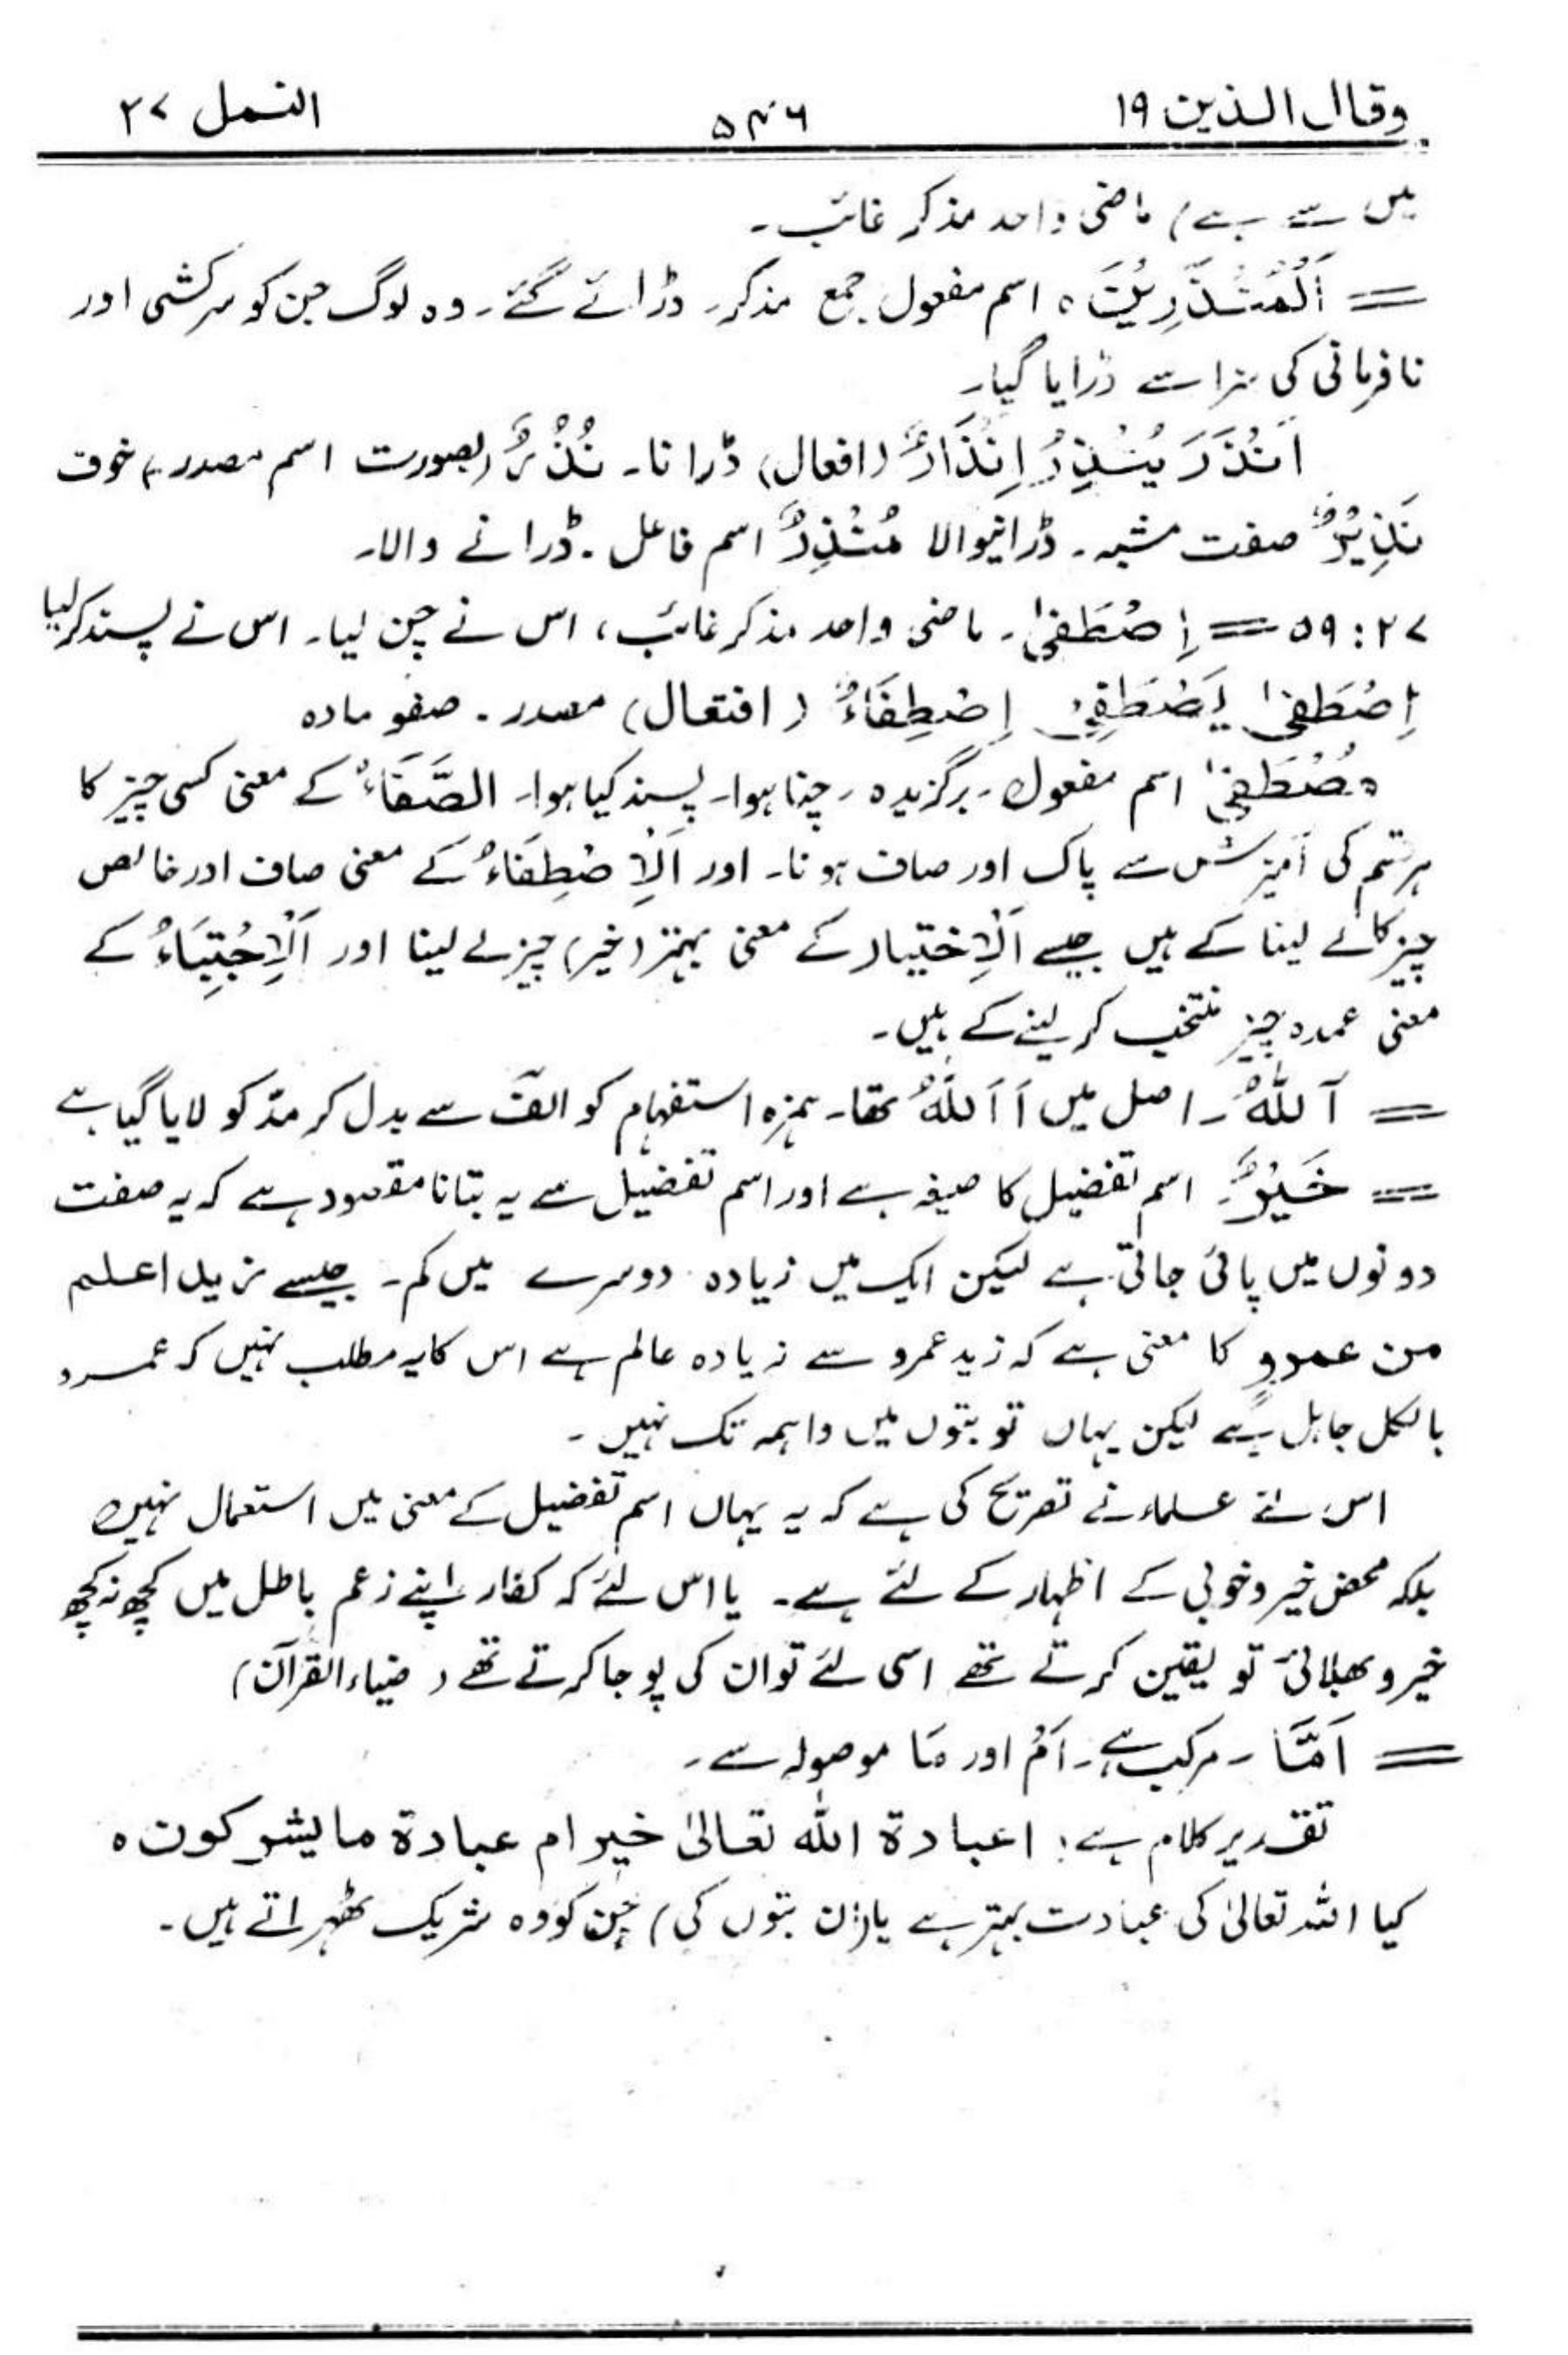 وقال الذین ۱۹ ۵۴۶ النمل ۲۷
میں سے ہے) ماضی واحد مذکر غائب۔
= اَلْمُنْذَرِیْنَ ہ اسم مفعول جمع مذکر۔ ڈرائے گئے۔ وہ لوگ جن کو سرکشی اور
نافرمانی کی سزا سے ڈرایا گیا۔
اَنْذَرَ یُنْذِرُ اِنْذَارٌ (افعال) ڈرانا۔ نُذُرٌ (بصورت اسم مصدر) خوف
نَذِیْرٌ صفت مشبہ۔ ڈرانیوالا مُنْذِرٌ اسم فاعل۔ ڈرانے والا۔
۲۷: ۵۹ = اِصْطَفٰی۔ ماضی واحد مذکر غائب، اس نے چن لیا۔ اس نے پسند کرلیا
اِصْطَفٰی یَصْطَفِیْ اِصْطِفَاءٌ (افتعال) مصدر۔ صفو مادہ
مُصْطَفٰی اسم مفعول۔ برگزیدہ۔ چنا ہوا۔ پسند کیا ہوا۔ الصَّفَاءُ کے معنی کسی چیز کا
ہر قسم کی آمیزش سے پاک اور صاف ہونا۔ اور اَلْاِصْطِفَاءُ کے معنی صاف اور خالص
چیز کا لے لینا کے ہیں جیسے اَلْاِختیار کے معنی بہتر (خیر) چیز لے لینا اور اَلْاِجْتِبَاءُ کے
معنی عمدہ چیز منتخب کر لینے کے ہیں۔
= آللّٰہُ۔ اصل میں أَ اَللّٰہُ تھا۔ ہمزہ استفہام کو الف سے بدل کر مدّ کو لایا گیا ہے
= خَیْرٌ۔ اسم تفضیل کا صیغہ ہے اور اسم تفضیل سے یہ بتانا مقصود ہے کہ یہ صفت
دونوں میں پائی جاتی ہے لیکن ایک میں زیادہ دوسرے میں کم۔ جیسے زید اعلم
من عمروٍ کا معنی ہے کہ زید عمرو سے زیادہ عالم ہے اس کا یہ مطلب نہیں کہ عمرو
بالکل جاہل ہے لیکن یہاں تو بتوں میں واہمہ تک نہیں۔
اس لئے علماء نے تصریح کی ہے کہ یہ یہاں اسم تفضیل کے معنی میں استعمال نہیں
بلکہ محض خیر و خوبی کے اظہار کے لئے ہے۔ یا اس لئے کہ کفار اپنے زعم باطل میں کچھ نہ کچھ
خیر و بھلائی تو یقین کرتے تھے اسی لئے تو ان کی پوجا کرتے تھے (ضیاء القرآن)
= اَمَّا۔ مرکب ہے۔ اَمْ اور مَا موصولہ سے۔
تقدیر کلام ہے: اعبادۃ اللّٰہ تعالیٰ خیر ام عبادۃ ما یشرکون ہ
کیا اللہ تعالیٰ کی عبادت بہتر ہے یا (ان بتوں کی) جن کو وہ شریک ٹھہراتے ہیں۔